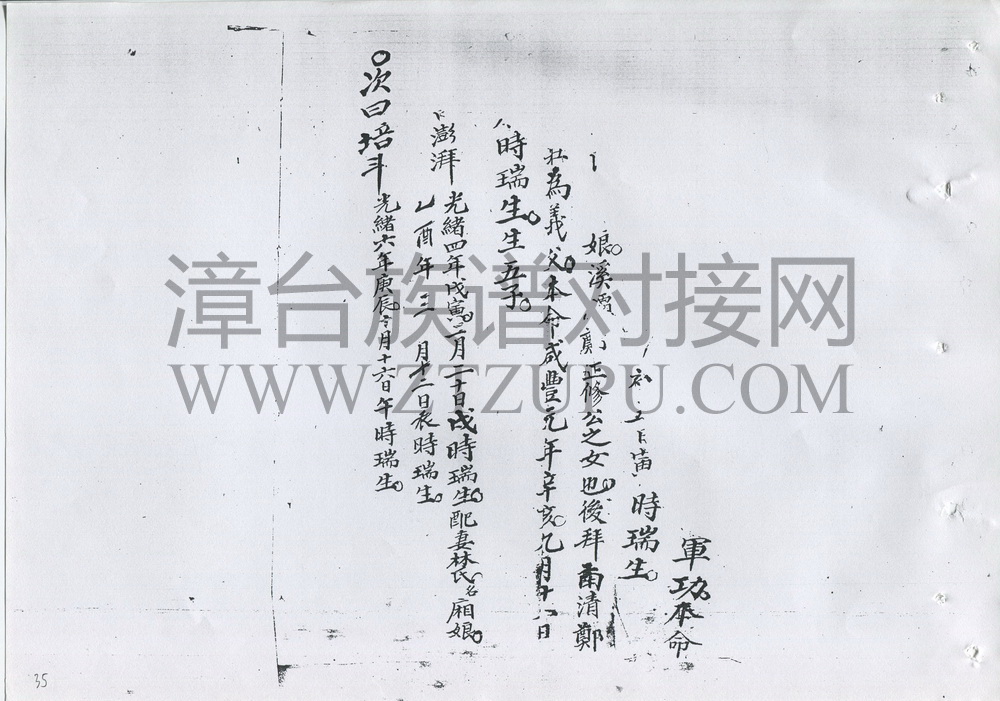 軍功本命
時瑞生
娘溪 鄭正修公之女也後拜 清鄭
為義父本命咸豐元年辛亥九月十八日
時瑞生生五子
澎湃 光緒四年戊寅 月二十日戌時瑞生配妻林氏名廂娘
乙酉年三月十二日 時瑞生
次曰培斗 光緒六年庚辰 月十六日午時瑞生
漳台族谱对接网
WWW.ZTZUPU.COM
35